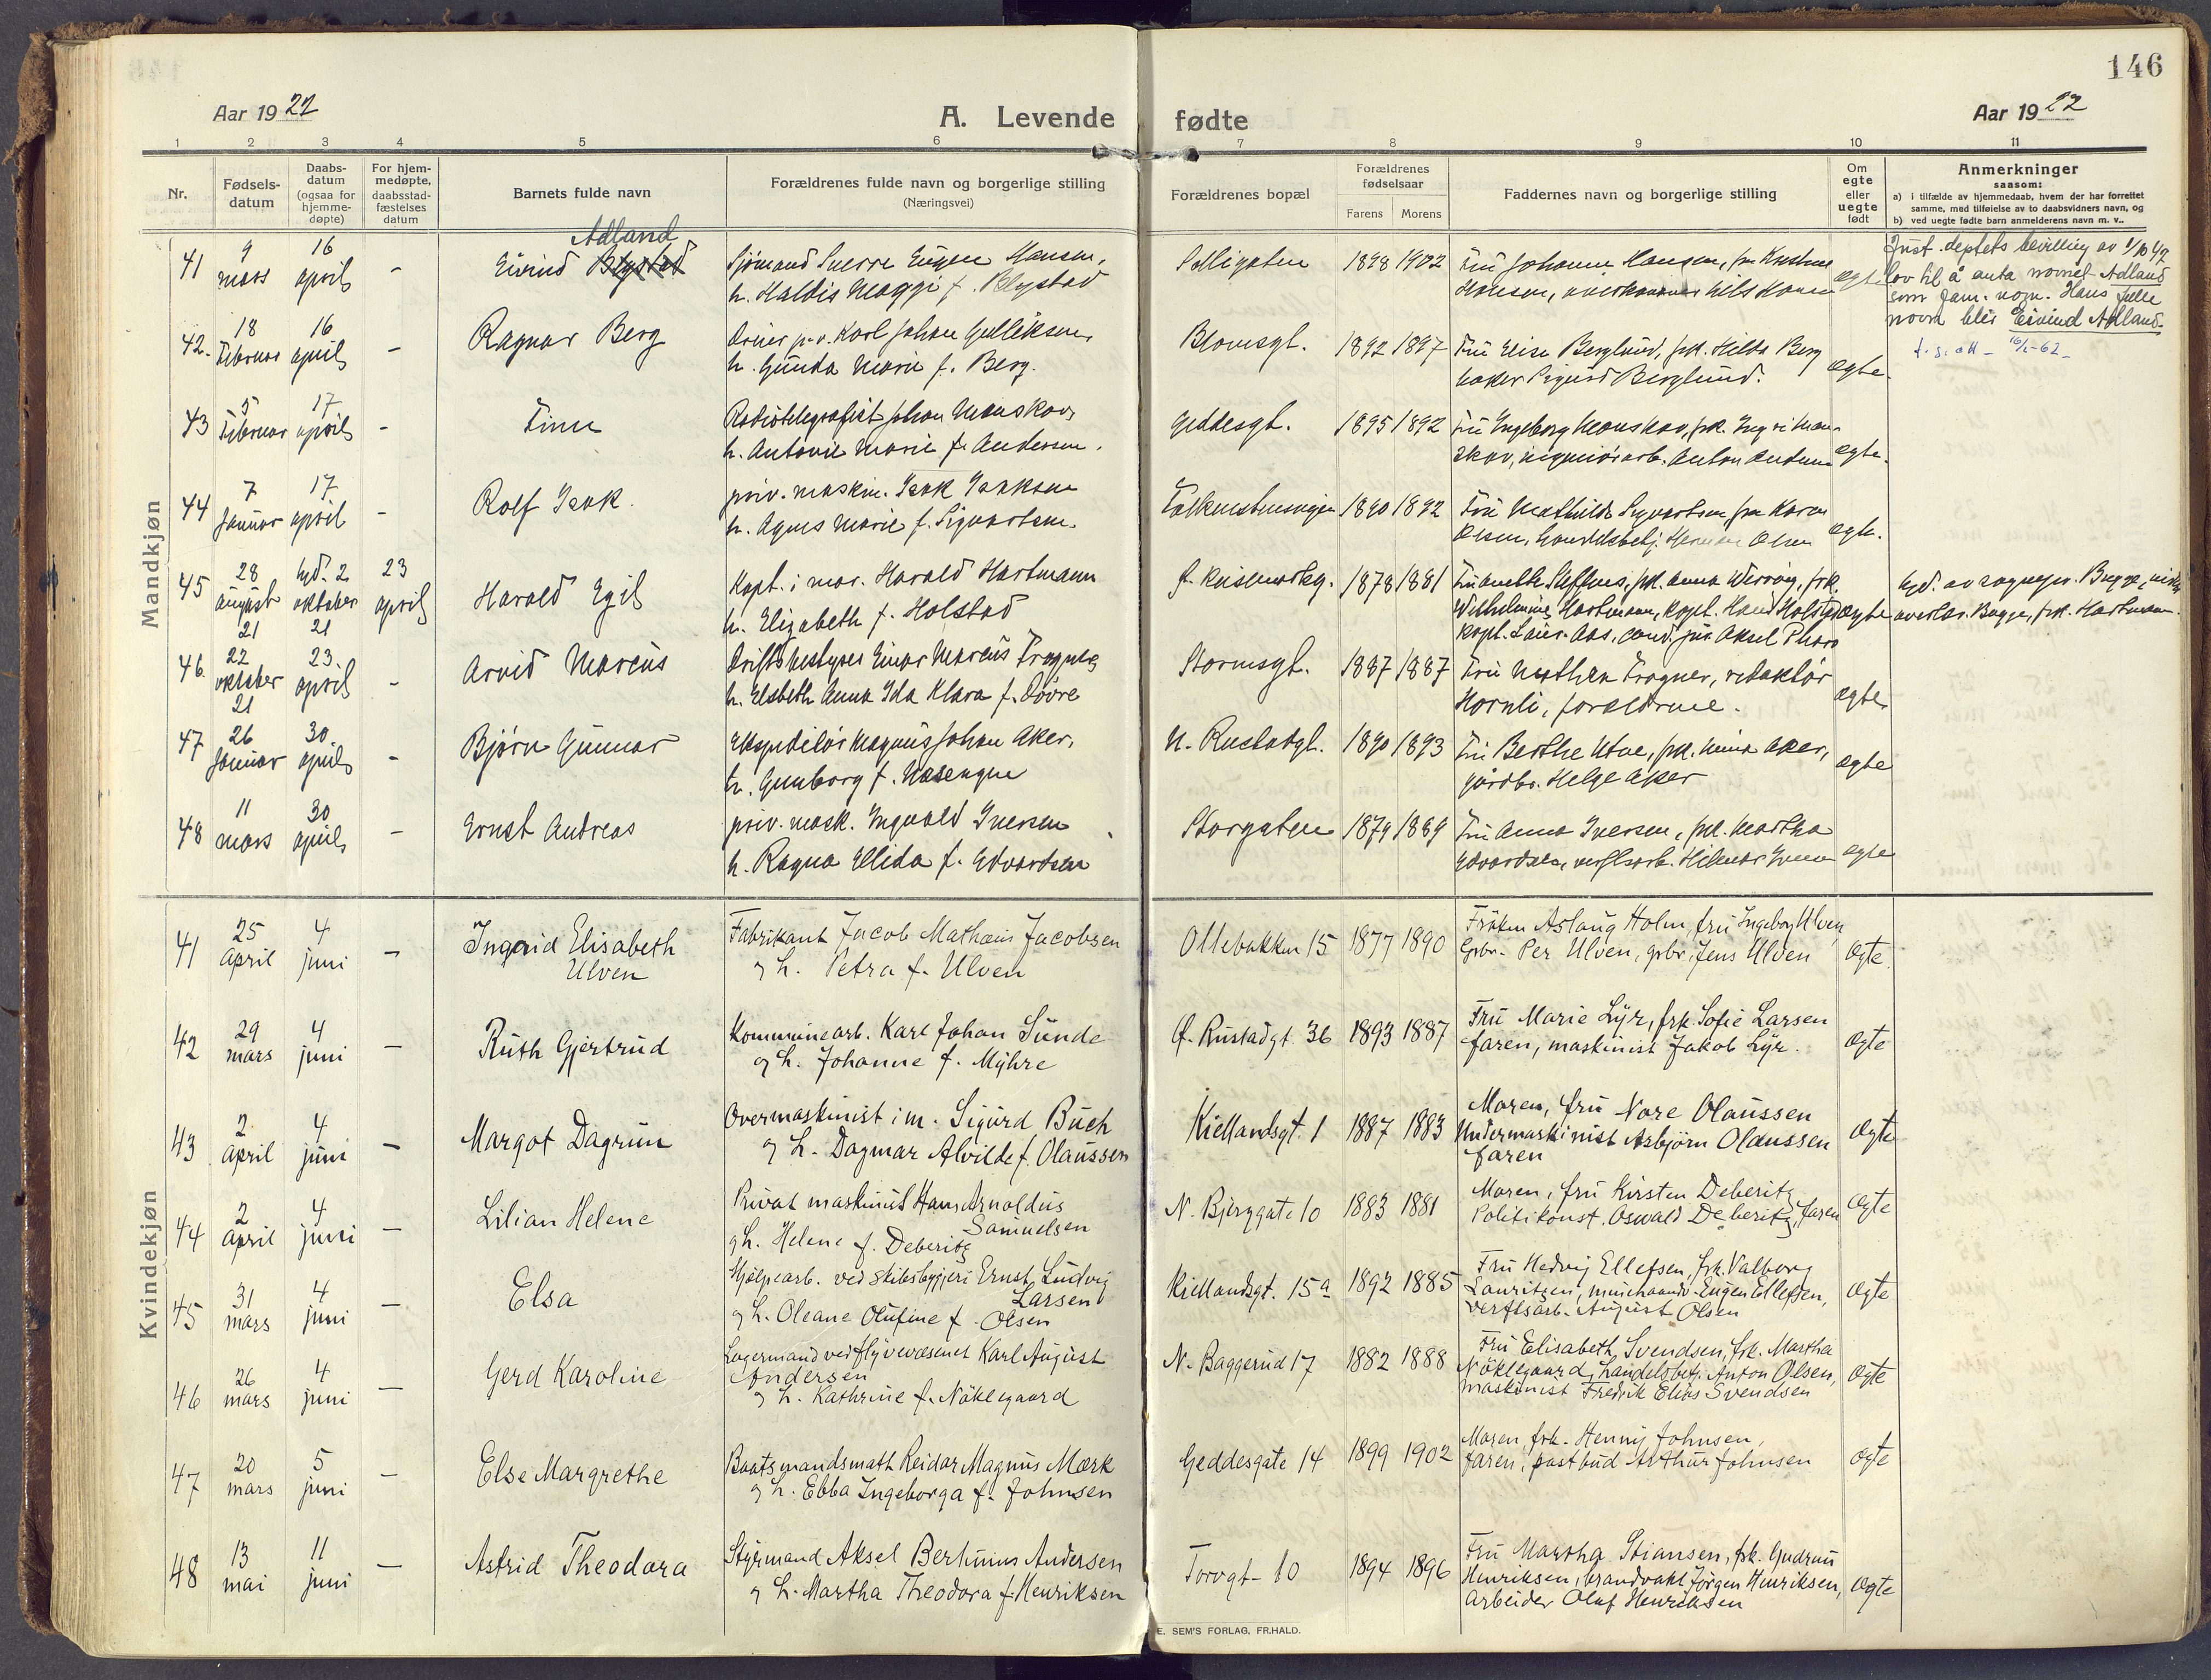 146
Aar 1922
A. Levende fødte
Aar 1922
1 2 3 4 5 6 7 8 9 10 11
Nr.
Fødsels-
datum
Daabs-
datum
(ogsaa for
hjemme-
døpte)
For hjem-
medøpte,
daabsstad-
fæstelses
datum
Barnets fulde navn
Forældrenes fulde navn og borgerlige stilling
(Næringsvei)
Forældrenes bopæl
Forældrenes
fødselsaar
Farens Morens
Faddernes navn og borgerlige stilling
Om
egte
eller
uegte
født
Anmerkninger
saasom:
a) i tilfælde av hjemmedaab, hvem der har forrettet
samme, med tilføielse av to daabsvidners navn, og
b) ved uegte fødte barn anmelderens navn m. v..
Mandkjøn
41 9 mars 16 april -
Adland
Eivind Blystad
Sjømand Sverre Eugen Hansen,
h. Haldis Maggi f. Blystad
1898 1902
Fru Johanne Hansen,
egte
Just. deptets bevilling av 1/10 42
lov til å anta navnet Adland
som fam. navn. Hans fulle
navn blir Eivind Adland.
42. 18 Februar 16 april -
Ragnar Berg
Karl Johan Gulliksen,
h. Gunda Marie f. Berg.
Blomsgt. 1892 1897
Fru Elise Berglund, frk. Hilda Berg
baker Sigurd Berglund.
egte
43 5 Februar 17 april -
Finn
Radiotelegrafist Johan Mauskov,
h. Antonie Marie f. Andersen.
Geddesgt. 1895 1892
Fru Ingeborg Mauskov, frk.
egte.
44 7 Januar 17 april -
Rolf Isak.
priv. maskin. Isak Isaksen
h. Agnes Marie f. Sigvartsen.
1890 1892
Fru Mathilde Sigvartsen
Olsen, handelsbetj. Olsen
egte.
45 28 august 21 hjd. 2 oktober 21 23 april
Harald Egil
Kapt. i mar. Harald Hartmann
h. Elizabeth f. Holstad
1878 1881
Wilhelmine Hartmann, kapt. Holstad
egte
hjd. av sognepr. Bugge,
Bugge, frk. Hartmann.
46. 22 oktober 21 23 april -
Arvid Marcus
Driftsbestyrer Einar Marcus Trogner,
h. Elsbeth Anna Ida Klara f. Dovre
Stormsgt. 1887 1887
Fru Trogner, redaktör
Hornli, forældrene.
egte
47 26 Januar 30 april -
Bjørn Gunnar
Ekspeditör Magnus Johan Aker,
h. Gunborg f. Wasengen
N. Rustadgt. 1890 1893
Fru Berthe Utne, frk. Anna Aker,
gårdbr. Helge Aker
egte
48 11 mars 30 april -
Ernst Andreas
priv. mask. Ingvald Iversen
h. Ragna Elida f. Edvardsen
Storgaten 1879 1889
Fru Anna Iversen, frk. Martha
Edvardsen, verftsarb. Hilmar Iversen
egte
Kvindekjøn
41 25 April 4 juni -
Ingrid Elisabeth
Ulven
Fabrikant Jacob Mathæus Jacobsen
og h. Petra f. Ulven
Ollebakken 15 1877 1890
Frøken Aslaug Holm, fru Ingeborg Ulven,
Gbr. Per Ulven, gbr. Jens Ulven
egte
42 29 mars 4 juni -
Ruth Gjertrud
Kommunearb. Karl Johan Sunde
og h. Johanne f. Myhre
Ø. Rustadgt. 36 1893 1887
Fru Marie Lyr, frk. Sofie Larsen
faren, maskinist Jakob Lyr.
egte
43 2. April 4 juni -
Margot Dagrun
Overmaskinist i m. Sigurd Buch
og h. Dagmar Alvilde f. Olaussen
Kiellandsgt. 1 1887 1883
Moren, fru Nare Olaussen
Undermaskinist Asbjørn Olaussen
faren
egte
44 2 April 4 juni -
Lilian Helene
Privat maskinist Hans Arnoldus
Samuelsen
og h. Helene f. Deberitz
N. Bjerggate 10 1883 1881
Moren, fru Kirsten Deberitz
Politikonst. Oswald Deberitz, faren
egte
45 31 mars 4 juni -
Elsa
Hjælpearb. ved skibsbyggeri Ernst Ludvig
Larsen
og h. Oleane Olufine f. Olsen
Kiellandsgt. 15a 1892 1885
Fru Hedvig Ellefsen, frk. Valborg
Lauritzen, minehaandv. Eugen Ellefsen,
verftsarb. August Olsen
egte
46 26 mars 4 juni -
Gerd Karoline
Lagermand ved flyvevæsenet Karl August
Andersen
og h. Kathrine f. Nøklegaard
N. Baggerud 17 1882 1888
Fru Elisabeth Svendsen, frk. Martha
Nøklegaard, handelsbetj. Anton Olsen,
maskinist Fredrik Elias Svendsen
egte
47 20 mars 5 juni -
Else Margrethe
Baatsmandsmath Reidar Magnus Mørk
og h. Ebba Ingeborga f. Johnsen
Geddesgate 14 1899 1902
Moren, frk. Henny Johnsen,
faren, postbud Arthur Johnsen
egte
48 13 mai 11 juni -
Astrid Theodora
Styrmand Aksel Bertinius Andersen
og h. Martha Theodora f. Henriksen
Torvgt. 10 1894 1896
Fru Martha Stiansen, frk. Gudrun
Henriksen, brandvakt Jörgen Henriksen,
arbeider Oluf Henriksen
egte
E. SEM'S FORLAG, FR.HALD.